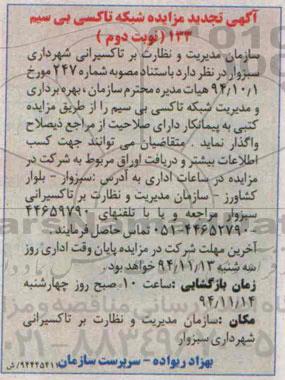 آگهی تجدید مزایده شبکه تاکسی بی سیم
۱۳۳ ( نوبت دوم )
سازمان مدیریت و نظارت بر تاکسیرانی شهرداری
سبزوار در نظر دارد باستناد مصوبه شماره ۲۴۷ مورخ
۹۴,۱۰,۱ هیات مدیره محترم سازمان ، بهره برداری
و مدیریت شبکه تاکسی بی سیم را از طریق مزایده
کتبی به پیمانکار دارای صلاحیت از مراجع ذیصلاح
واگذار نماید . متقاضیان می توانند جهت کسب
اطلاعات بیشتر و دریافت اوراق مربوط به شرکت در
مزایده در ساعات اداری به آدرس : سبزوار - بلوار
کشاورز - سازمان مدیریت و نظارت بر تاکسیرانی
سبزوار مراجعه و یا با تلفنهای ۴۴۶۵۹۷۹۰-
۴۴۶۵۲۷۹۰-۰۵۱ تماس حاصل فرمایند .
آخرین مهلت شرکت در مزایده پایان وقت اداری روز
سه شنبه ۹۴,۱۱,۱۳ خواهد بود .
زمان بازگشایی :ساعت ۱۰ صبح روز چهارشنبه
۹۴,۱۱,۱۴
مکان :سازمان مدیریت و نظارت بر تاکسیرانی
شهرداری سبزوار
بهزاد ریواده - سرپرست سازمان